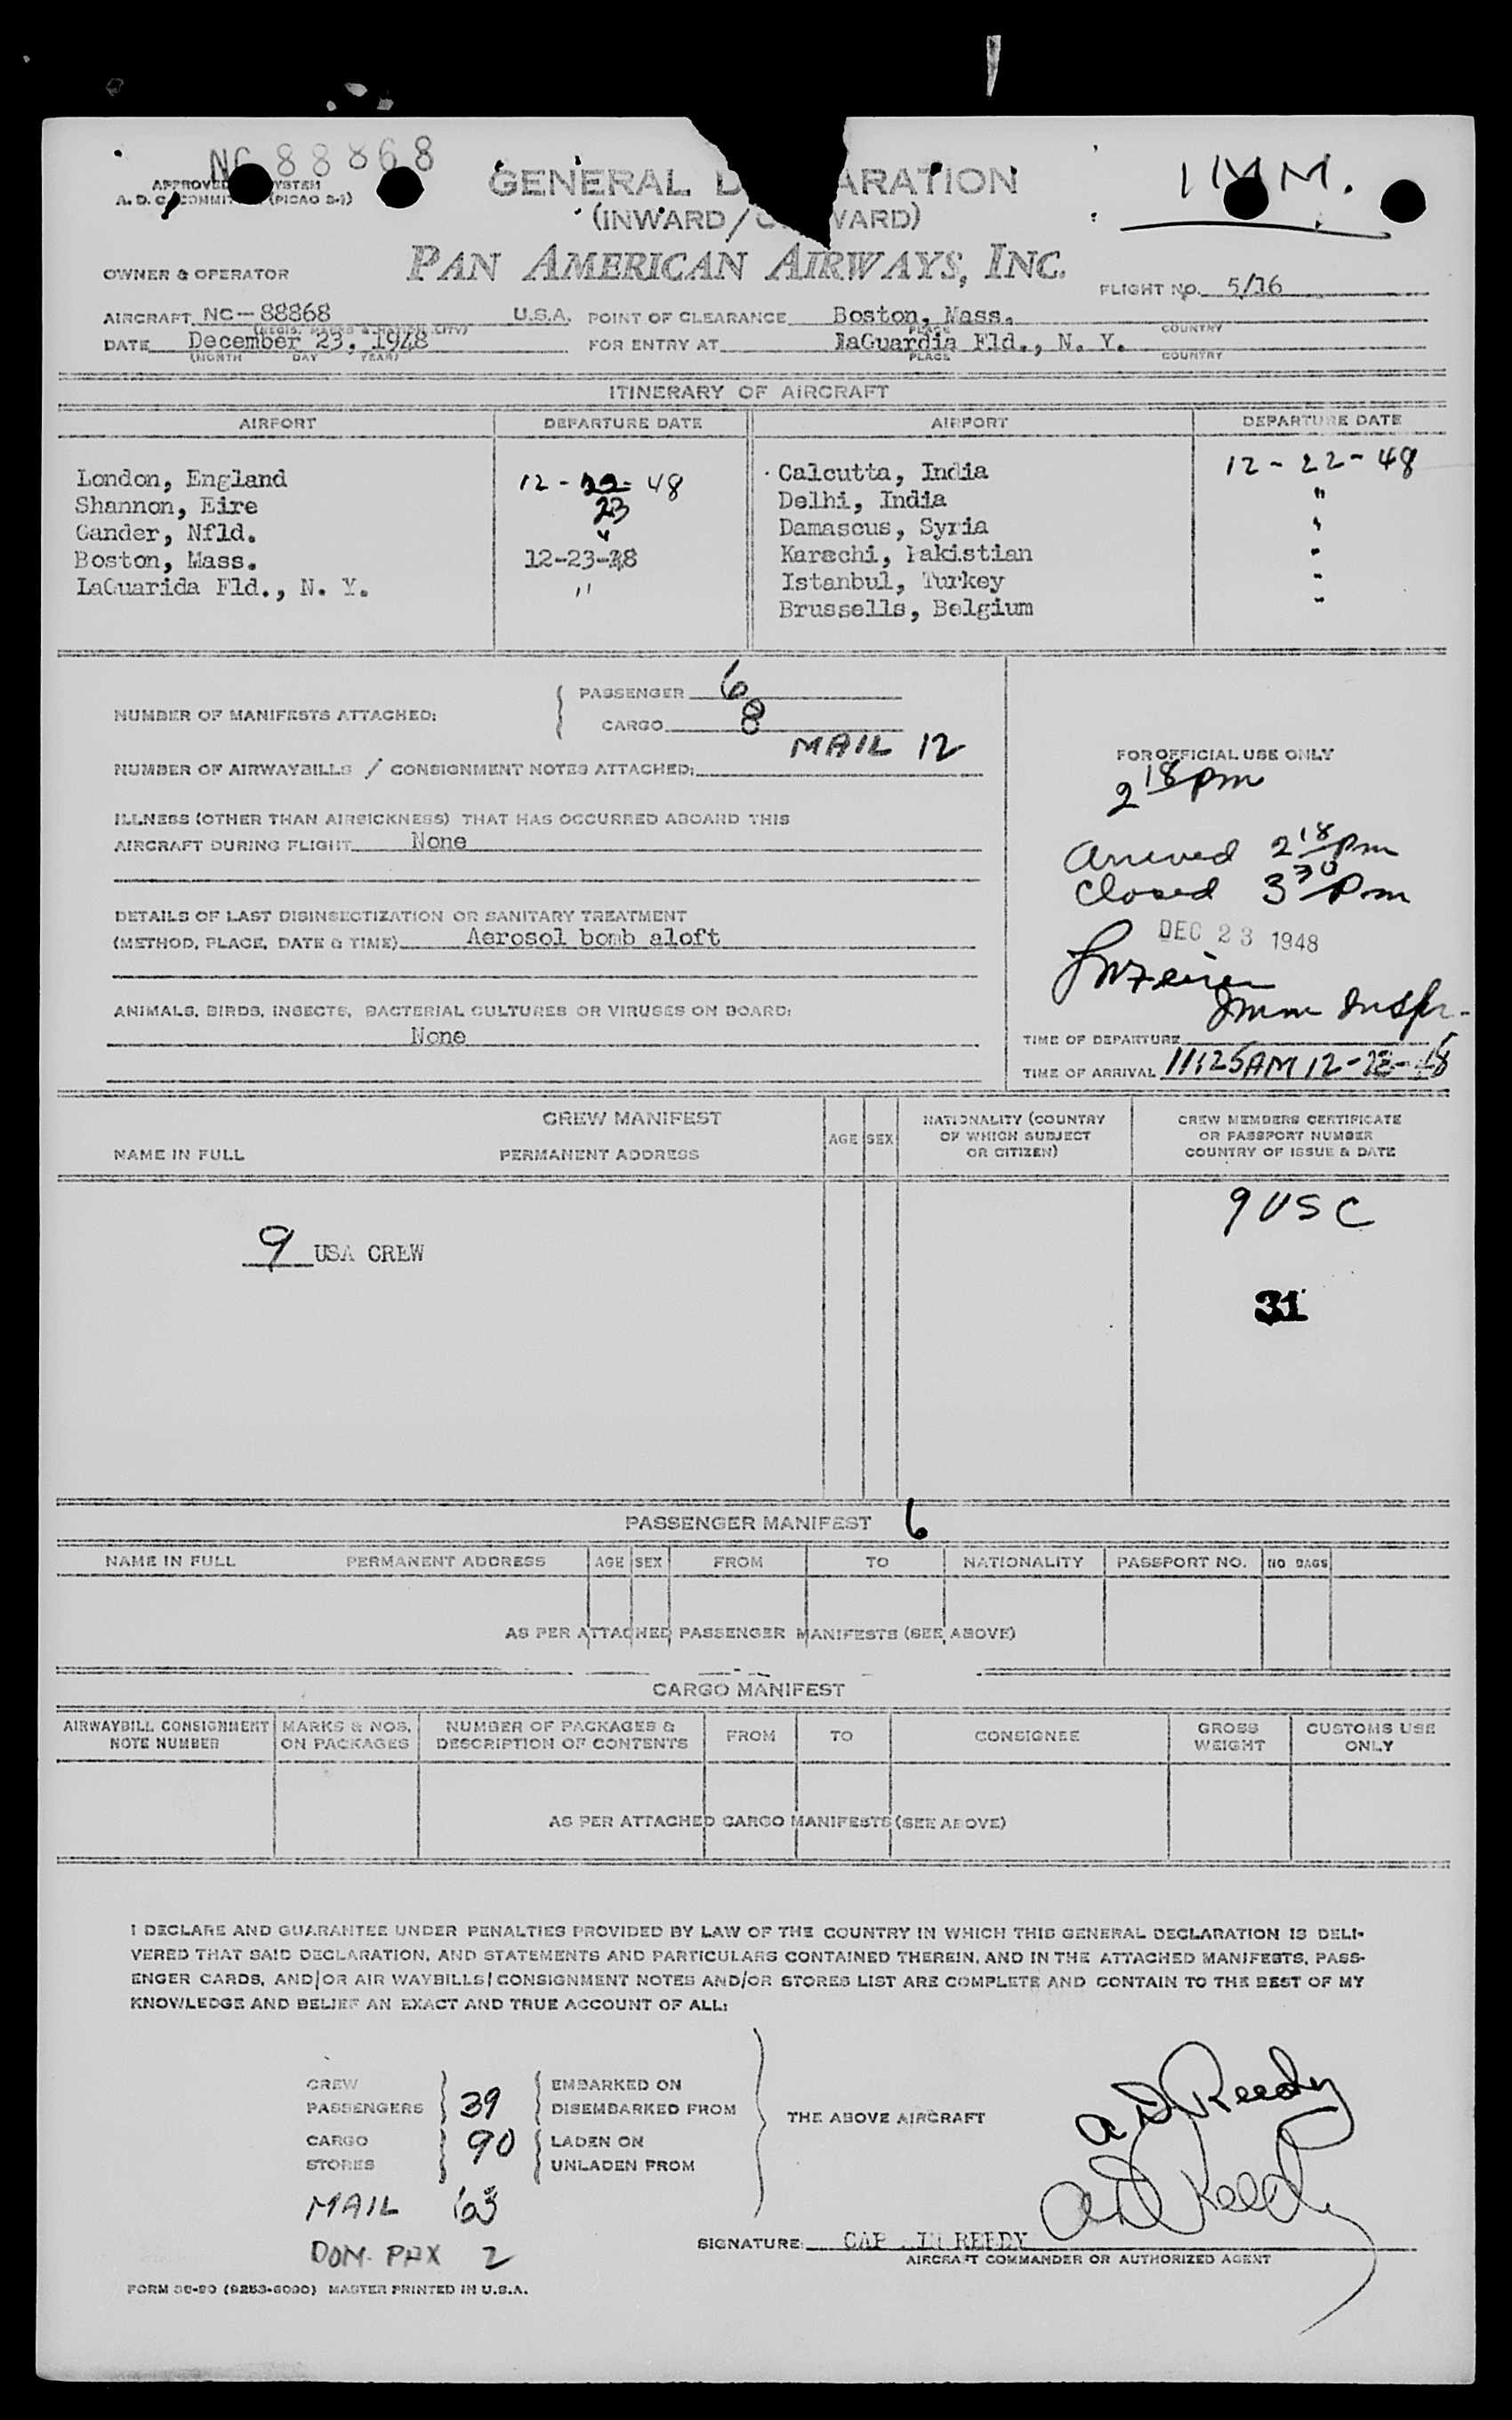 NC 88868
IMM.
APPROVED SYSTEM
A. D. C. COMMIT (PICAO S-1)
GENERAL D ARATION
(INWARD/ WARD)
PAN AMERICAN AIRWAYS, INC.
OWNER & OPERATOR
FLIGHT NO. 5/16
AIRCRAFT NC-88868 U.S.A. POINT OF CLEARANCE Boston, Mass.
(REGIS. MARKS & NATIONALITY) PLACE COUNTRY
DATE December 23, 1948 FOR ENTRY AT LaGuardia Fld., N. Y.
(MONTH DAY YEAR) PLACE COUNTRY
ITINERARY OF AIRCRAFT
AIRPORT DEPARTURE DATE AIRPORT DEPARTURE DATE
London, England 12-22-48 Calcutta, India 12-22-48
Shannon, Eire 23 Delhi, India "
Gander, Nfld. " Damascus, Syria "
Boston, Mass. 12-23-48 Karachi, Pakistian "
LaGuarida Fld., N. Y. " Istanbul, Turkey "
Brussells, Belgium "
NUMBER OF MANIFESTS ATTACHED: PASSENGER 6
CARGO 8
MAIL 12
NUMBER OF AIRWAYBILLS / CONSIGNMENT NOTES ATTACHED:
ILLNESS (OTHER THAN AIRSICKNESS) THAT HAS OCCURRED ABOARD THIS
AIRCRAFT DURING FLIGHT None
DETAILS OF LAST DISINSECTIZATION OR SANITARY TREATMENT
(METHOD, PLACE, DATE & TIME) Aerosol bomb aloft
ANIMALS, BIRDS, INSECTS, BACTERIAL CULTURES OR VIRUSES ON BOARD:
None
FOR OFFICIAL USE ONLY
2 18 pm
Arrived 2 18 pm
Closed 3 30 pm
DEC 23 1948
Imm Inspr.
TIME OF DEPARTURE
TIME OF ARRIVAL 11:25AM 12-23-48
CREW MANIFEST
NAME IN FULL PERMANENT ADDRESS AGE SEX
NATIONALITY (COUNTRY
OF WHICH SUBJECT
OR CITIZEN)
CREW MEMBERS CERTIFICATE
OR PASSPORT NUMBER
COUNTRY OF ISSUE & DATE
9 USC
9 USA CREW
31
PASSENGER MANIFEST 6
NAME IN FULL PERMANENT ADDRESS AGE SEX FROM TO NATIONALITY PASSPORT NO. NO BAGS
AS PER ATTACHED PASSENGER MANIFESTS (SEE ABOVE)
CARGO MANIFEST
AIRWAYBILL CONSIGNMENT
NOTE NUMBER
MARKS & NOS.
ON PACKAGES
NUMBER OF PACKAGES &
DESCRIPTION OF CONTENTS
FROM TO CONSIGNEE
GROSS
WEIGHT
CUSTOMS USE
ONLY
AS PER ATTACHED CARGO MANIFESTS (SEE ABOVE)
I DECLARE AND GUARANTEE UNDER PENALTIES PROVIDED BY LAW OF THE COUNTRY IN WHICH THIS GENERAL DECLARATION IS DELI-
VERED THAT SAID DECLARATION, AND STATEMENTS AND PARTICULARS CONTAINED THEREIN, AND IN THE ATTACHED MANIFESTS, PASS-
ENGER CARDS, AND/OR AIR WAYBILLS/CONSIGNMENT NOTES AND/OR STORES LIST ARE COMPLETE AND CONTAIN TO THE BEST OF MY
KNOWLEDGE AND BELIEF AN EXACT AND TRUE ACCOUNT OF ALL:
CREW EMBARKED ON
PASSENGERS 39 DISEMBARKED FROM
THE ABOVE AIRCRAFT
CARGO 90 LADEN ON
STORES UNLADEN FROM
MAIL 63
DOM. PAX 2
A D Reedy
A D Reedy
SIGNATURE: CAP IN REEDY
AIRCRAFT COMMANDER OR AUTHORIZED AGENT
FORM MASTER PRINTED IN U.S.A.